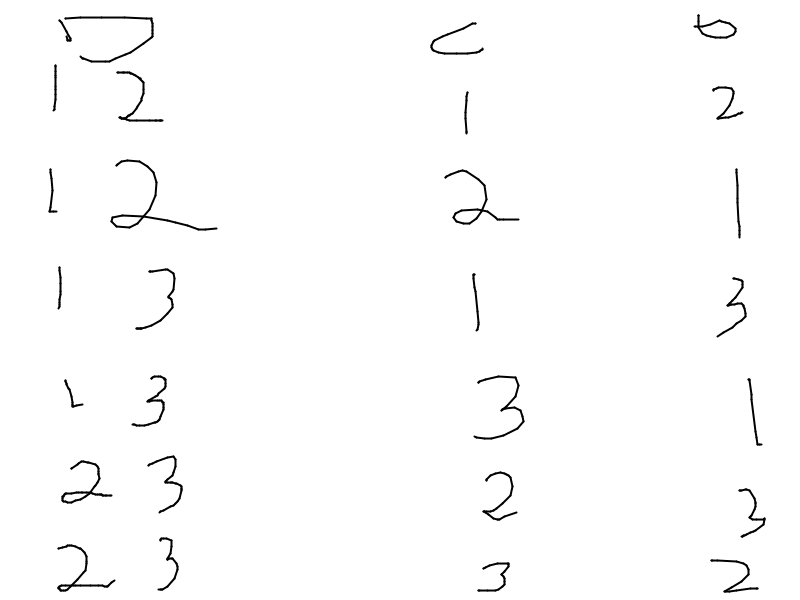 D c b
1 2 1 2
1 2 2 1
1 3 1 3
1 3 3 1
2 3 2 3
2 3 3 2